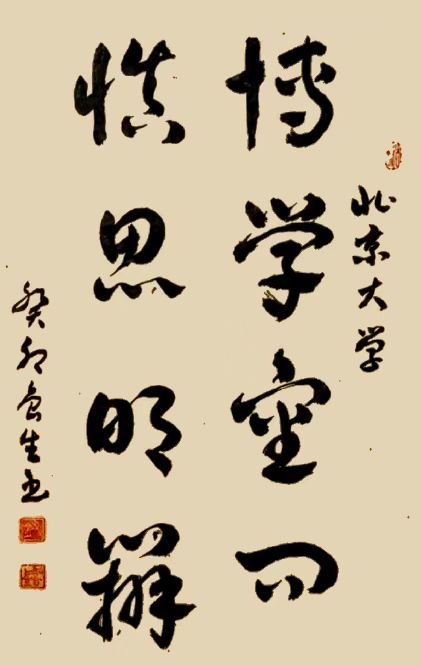 北京大学
博学审问
慎思明辨
癸卯生书